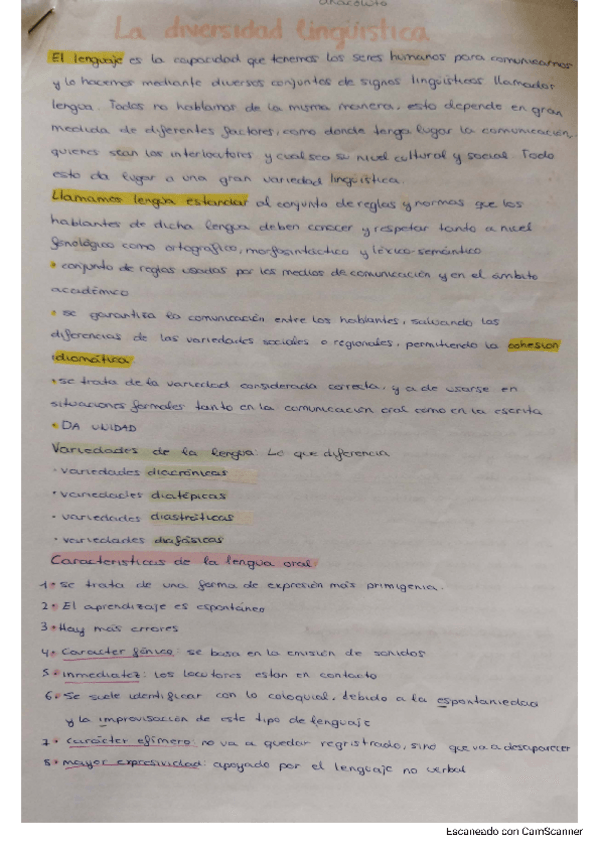 anacoluto
La diversidad lingüística
El lenguaje es la capacidad que tenemos los seres humanos para comunicarnos
y lo hacemos mediante diversos conjuntos de signos lingüísticos llamados
lengua. Todos no hablamos de la misma manera, esto depende en gran
medida de diferentes factores, como donde tenga lugar la comunicación,
quienes sean los interlocutores y cual sea su nivel cultural y social. Todo
esto da lugar a una gran variedad lingüística.
Llamamos lengua estandar al conjunto de reglas y normas que los
hablantes de dicha lengua deben conocer y respetar tanto a nivel
fonológico como ortográfico, morfosintáctico y léxico-semántico
• conjunto de reglas usadas por los medios de comunicación y en el ámbito
académico
• se garantiza la comunicación entre los hablantes, salvando las
diferencias de las variedades sociales o regionales, permitiendo la cohesion
idiomática.
• se trata de la variedad considerada correcta, y a de usarse en
situaciones formales tanto en la comunicación oral como en la escrita
• DA UNIDAD
Variedades de la lengua: Lo que diferencia
• variedades diacrónicas
• variedades diatópicas
• variedades diastráticas
• variedades diafásicas
Características de la lengua oral
1• se trata de una forma de expresión más primigenia.
2• El aprendizaje es espontáneo
3• Hay más errores
4• Caracter fónico: se basa en la emisión de sonidos
5• inmediatez: los locutores estan en contacto
6• Se suele identificar con lo coloquial, debido a la espontaniedad
y la improvisación de este tipo de lenguaje
7• carácter efímero: no va a quedar regristrado, sino que va a desaparecer
8• mayor expresividad: apoyado por el lenguaje no verbal
Escaneado con CamScanner